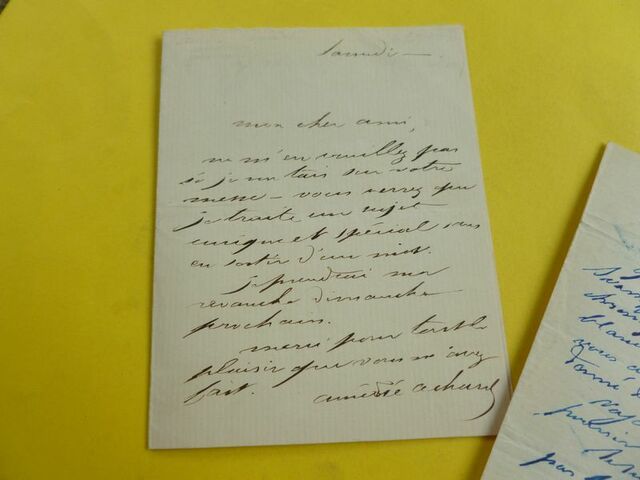 Samedi —
mon cher ami,
ne m'en veuillez pas
si je me tais sur votre
messe — vous verrez que
je traite un sujet
unique et spécial sans
en sortir d'un mot.
je prendrai ma
revanche dimanche
prochain.
merci pour tout le
plaisir que vous m'avez
fait.
amédée achard
vous
pas